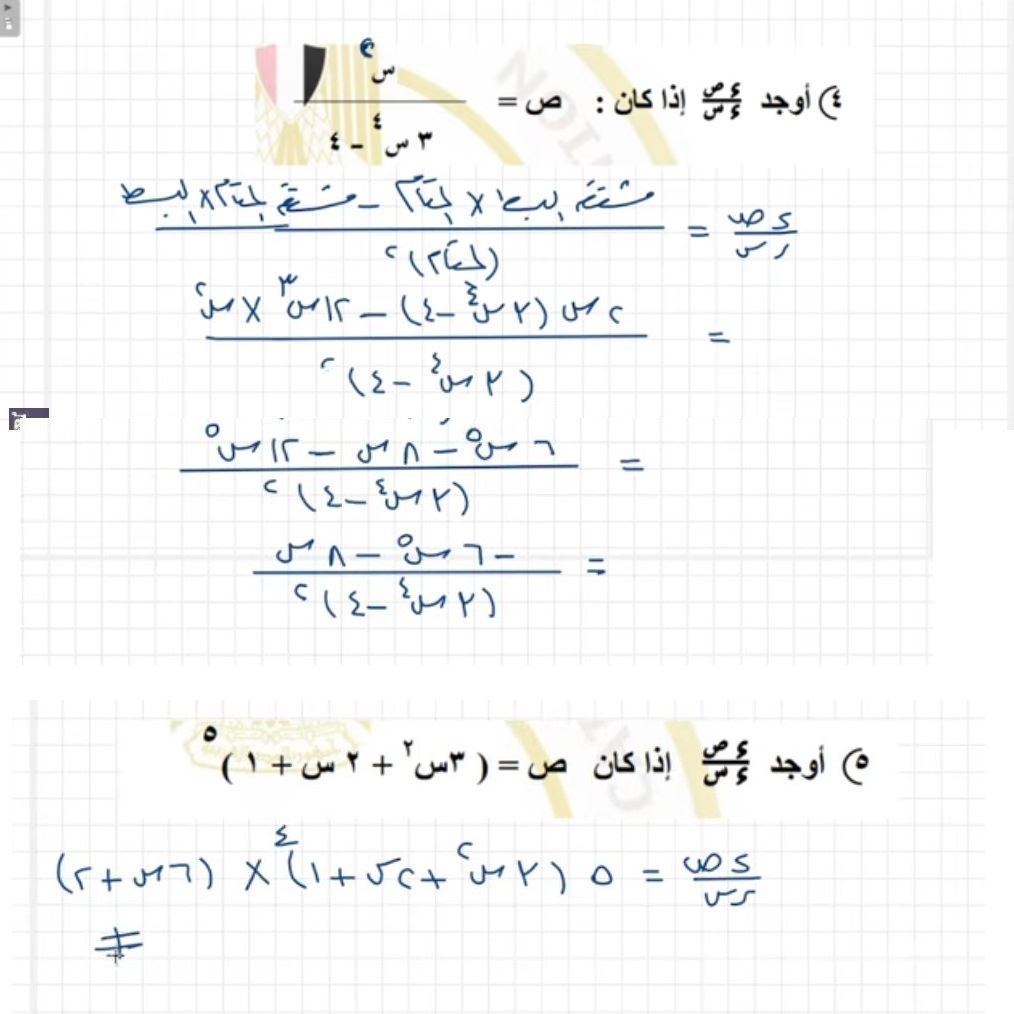 ٤) أوجد ءص/ءس إذا كان : ص = س^٢ / (٣ س^٤ - ٤)
ءص/ءس = (مشتقة البسط × المقام - مشتقة المقام × البسط) / (المقام)^٢
= (٢س (٣س^٤ - ٤) - ١٢س^٣ × س^٢) / (٣س^٤ - ٤)^٢
= (٦س^٥ - ٨س - ١٢س^٥) / (٣س^٤ - ٤)^٢
= (-٦س^٥ - ٨س) / (٣س^٤ - ٤)^٢
٥) أوجد ءص/ءس إذا كان ص = ( ٣س^٢ + ٢ س + ١ )^٥
ءص/ءس = ٥ (٣س^٢ + ٢س + ١)^٤ × (٦س + ٢)
#